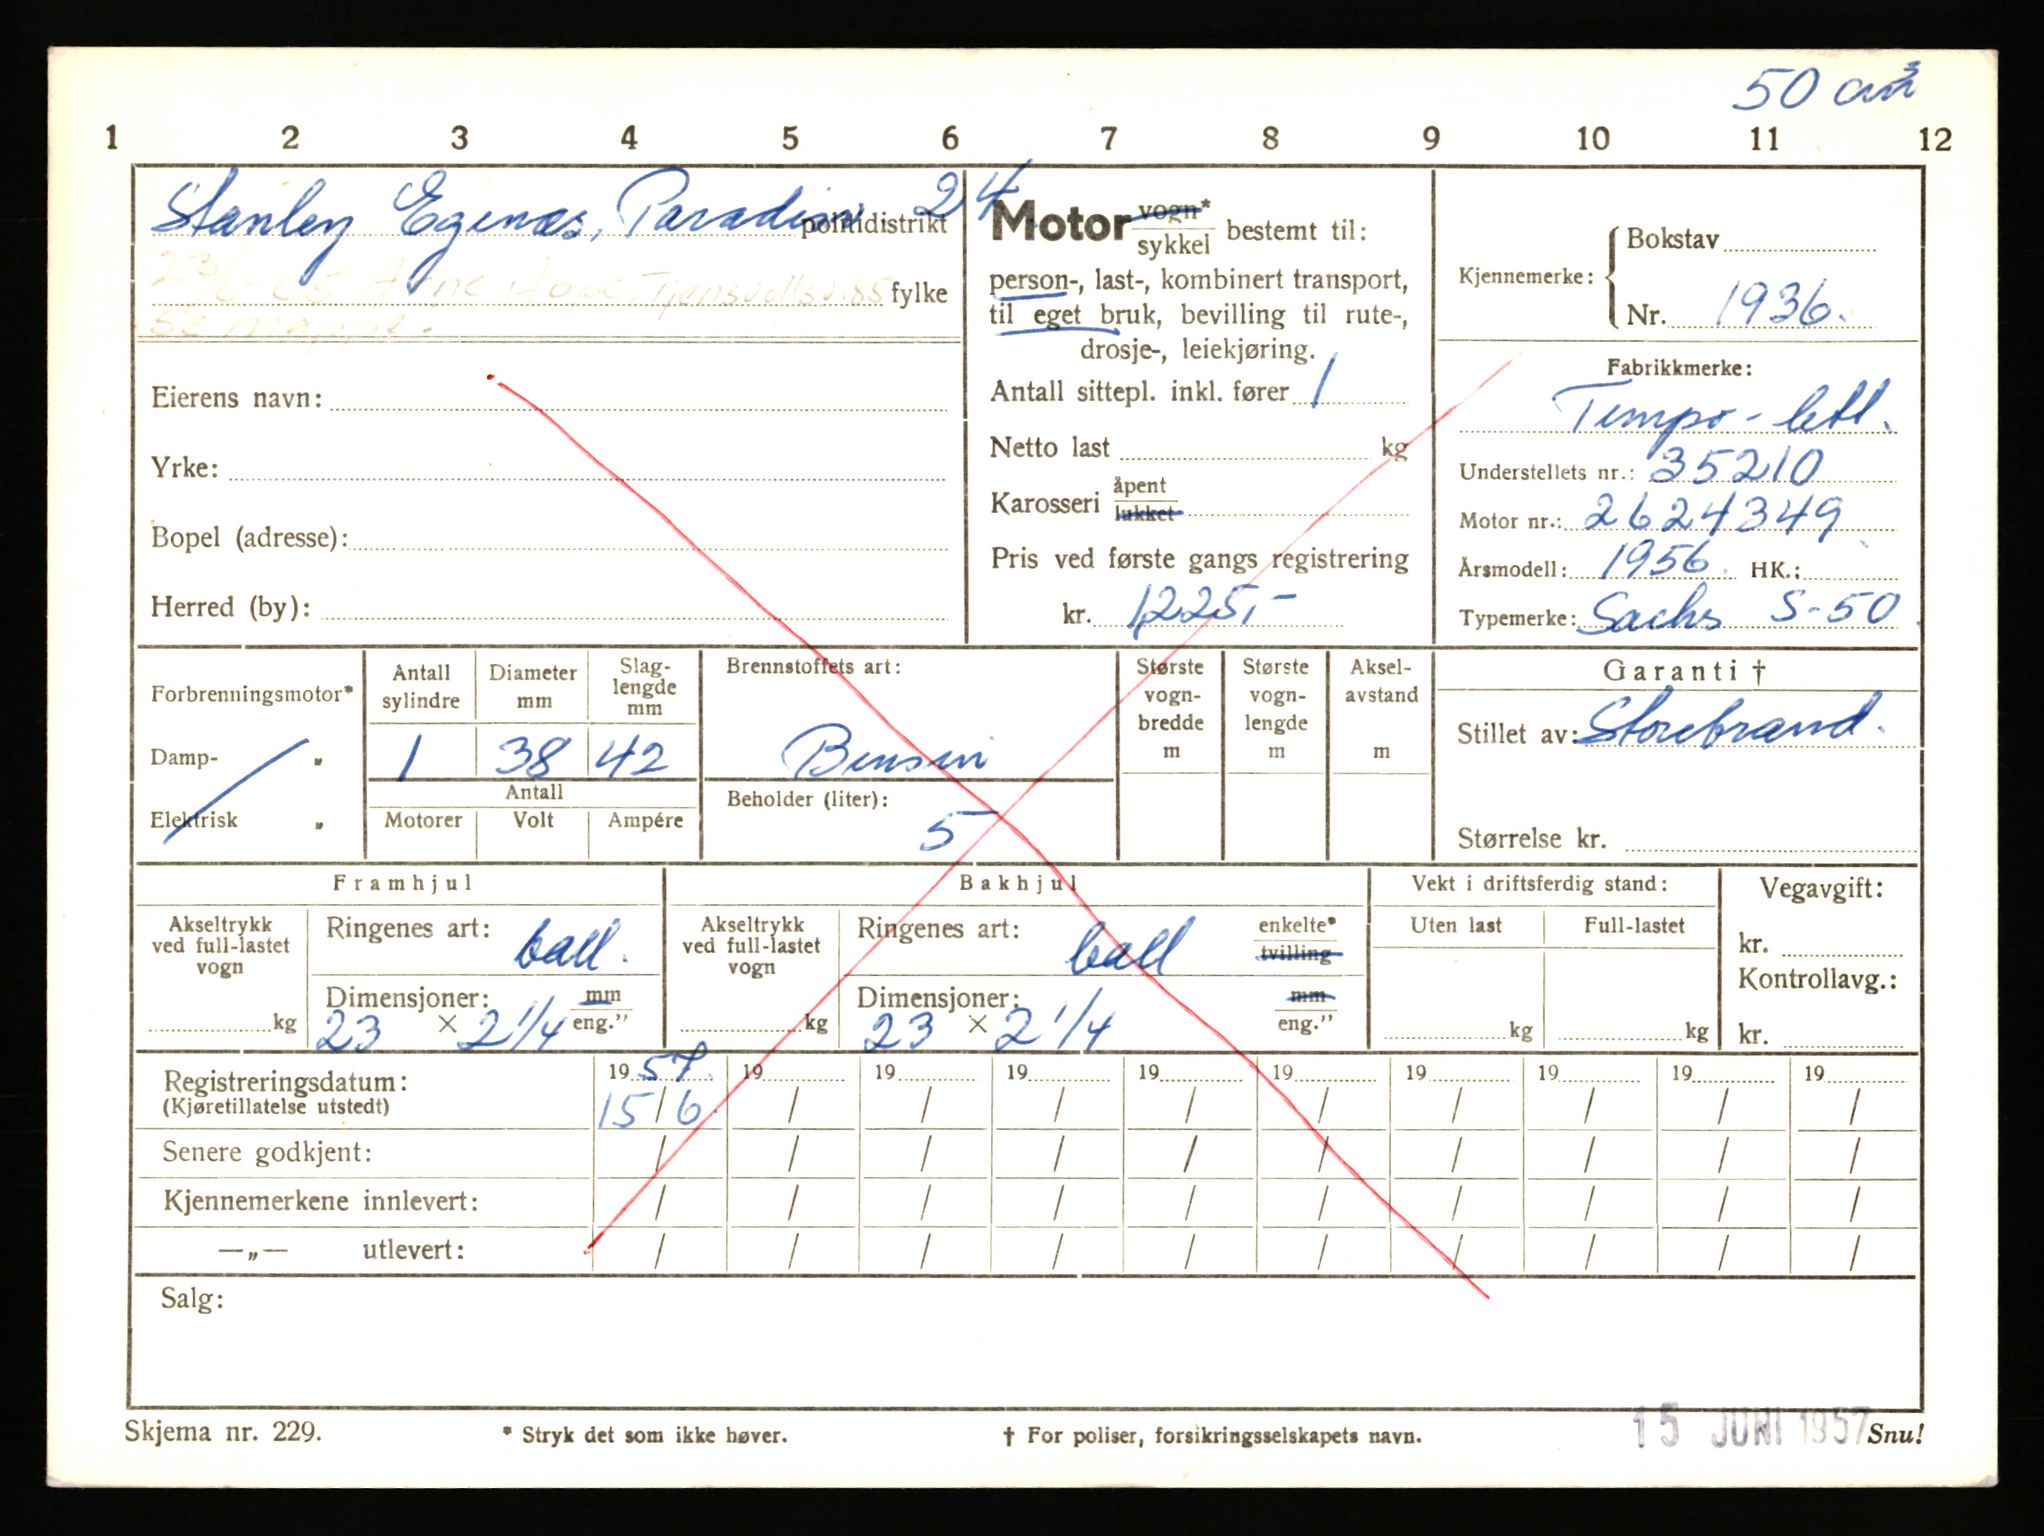 50 cm³
1 2 3 4 5 6 7 8 9 10 11 12
Stanley Egenæs, Paradisv 24
politidistrikt
23/6-65 Arne Hope, Tjensvollsv. 85
fylke
se mappe.
Eierens navn:
Yrke:
Bopel (adresse):
Herred (by):
Motor vogn* sykkel bestemt til:
person-, last-, kombinert transport,
til eget bruk, bevilling til rute-,
drosje-, leiekjøring.
Antall sittepl. inkl. fører 1
Netto last kg
Karosseri åpent lukket
Pris ved første gangs registrering
kr. 1225,-
Kjennemerke:
Bokstav
Nr. 1936.
Fabrikkmerke:
Tempo - lett.
Understellets nr.: 35210
Motor nr.: 2624349
Årsmodell: 1956. HK.:
Typemerke: Sachs S-50
Forbrenningsmotor*
Damp- „
Elektrisk „
Antall sylindre
1
Diameter mm
38
Slag-lengde mm
42
Antall
Motorer Volt Ampére
Brennstoffets art:
Bensin
Beholder (liter):
5
Største vogn-bredde m
Største vogn-lengde m
Aksel-avstand m
Garanti †
Stillet av: Storebrand.
Størrelse kr.
Framhjul
Akseltrykk ved full-lastet vogn
kg
Ringenes art: ball.
Dimensjoner: mm eng."
23 × 2 1/4
Bakhjul
Akseltrykk ved full-lastet vogn
kg
Ringenes art: ball enkelte* tvilling
Dimensjoner: mm eng."
23 × 2 1/4
Vekt i driftsferdig stand:
Uten last Full-lastet
kg kg
Vegavgift:
kr.
Kontrollavg.:
kr.
Registreringsdatum: 1957. 19 19 19 19 19 19 19 19 19
(Kjøretillatelse utstedt) 15/6. / / / / / / / / /
Senere godkjent: / / / / / / / / / /
Kjennemerkene innlevert: / / / / / / / / / /
—„— utlevert: / / / / / / / / / /
Salg:
Skjema nr. 229. * Stryk det som ikke høver. † For poliser, forsikringsselskapets navn. 15 JUNI 1957 Snu!